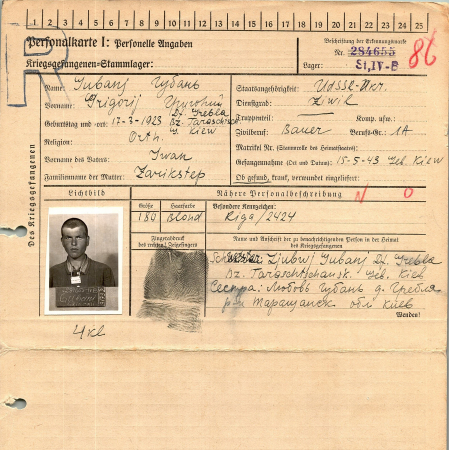 1 2 3 4 5 6 7 8 9 10 11 12 13 14 15 16 17 18 19 20 21 22 23 24 25
Personalkarte I: Personelle Angaben
Kriegsgefangenen-Stammlager:
Beschriftung der Erkennungsmarke
Nr. 284655
Lager: St,IV-B
86
R
Des Kriegsgefangenen
Name: Gubanj Губань
Vorname: Grigorij
Geburtstag und -ort: 17-3-1923 D. Grebla Bz. Taraschtsch G. Kiew
Religion: Orth.
Vorname des Vaters: Iwan
Familienname der Mutter: Zarikstep
Staatsangehörigkeit: UdSSR-Ukr.
Dienstgrad: Ziwil
Truppenteil: Komp. usw.:
Zivilberuf: Bauer Berufs-Gr. 1A
Matrikel Nr. (Stammrolle des Heimatstaates):
Gefangennahme (Ort und Datum): 15-5-43 Geb. Kiew
Ob gesund, krank, verwundet eingeliefert:
Lichtbild
Nähere Personalbeschreibung
N O
Größe
180
Haarfarbe
Blond
Besondere Kennzeichen:
Riga/2424
Fingerabdruck
des rechten Zeigefingers
Name und Anschrift der zu benachrichtigenden Person in der Heimat
des Kriegsgefangenen
Ljubwj Gubanj D. Grebla
Bz. Taraschtschansk. Geb. Kiew
Сестра: Любовь Губань д. Гребля
р-н Таращанск обл Киев
Wenden!
4 кл